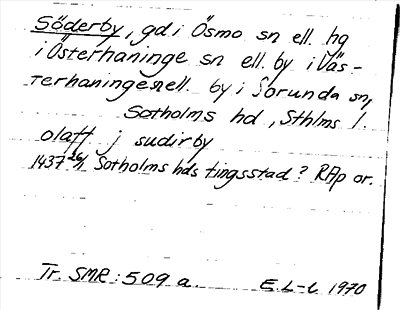 Söderby, gd i Ösmo sn ell. hg
i Österhaninge sn ell. by i Väs-
terhaninge sn ell. by i Sorunda sn,
Sotholms hd, Sthlms l.
olaff j sudirby
1437 26/1 Sotholms hds tingsstad? RAp or.
Tr. SMR: 509 a. E.L-t 1970